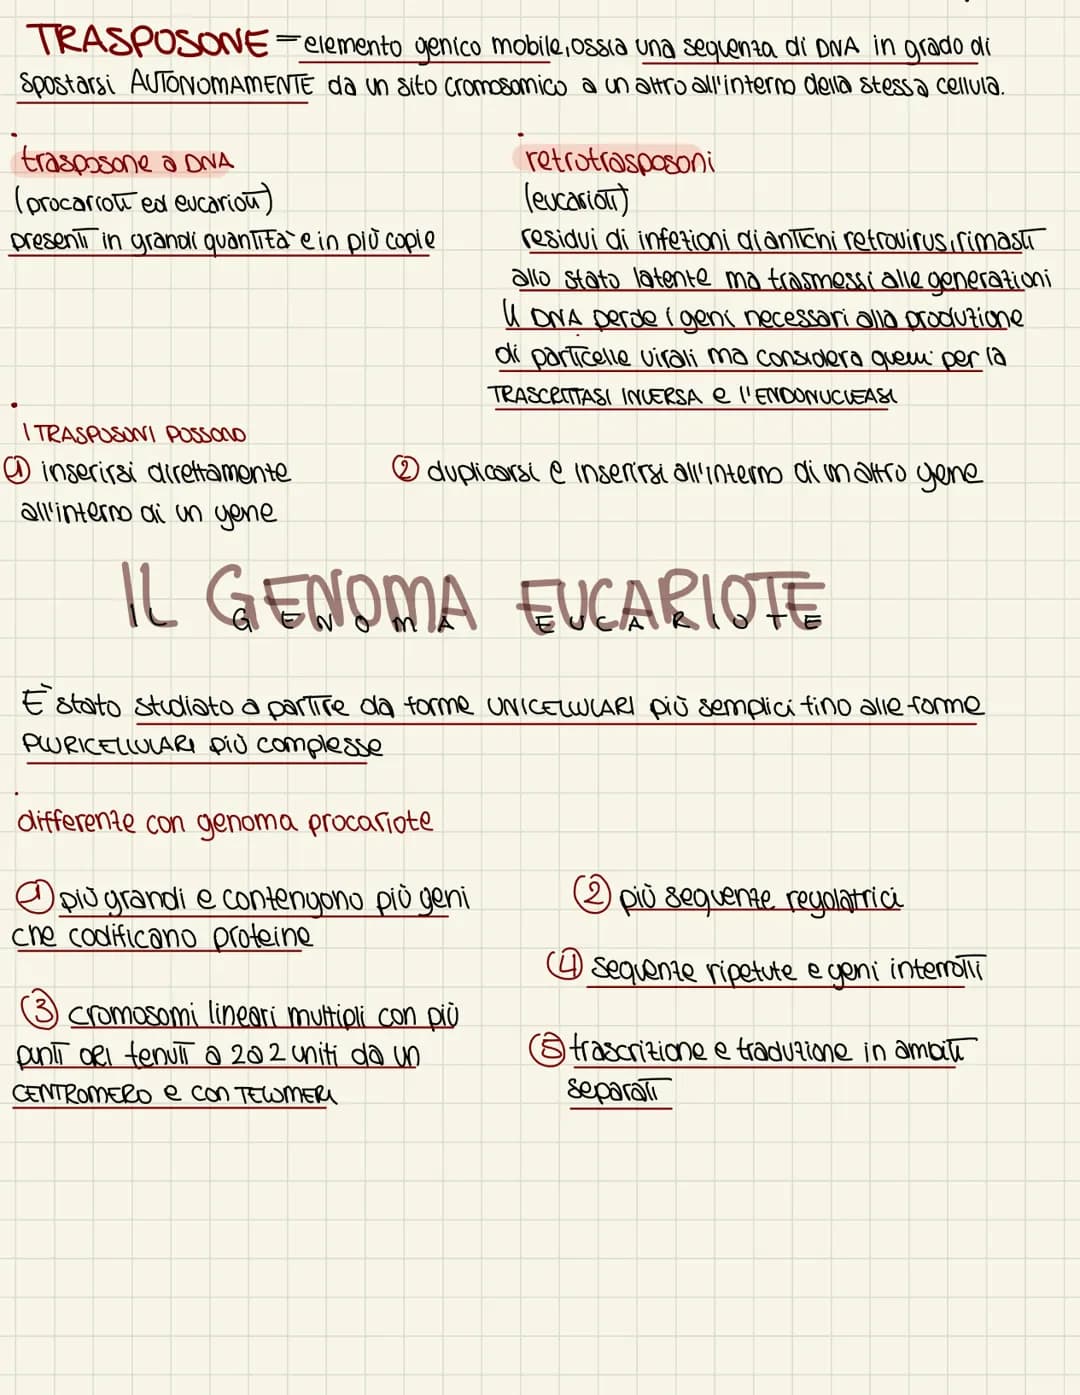 TRASPOSONE = elemento genico mobile, ossia una sequenza di DNA in grado di
spostarsi AUTONOMAMENTE da un sito cromosomico a un altro all'interno della stessa cellula.
trasposone a DNA
(procarioti ed eucarioti)
presenti in grandi quantità e in più copie
retrotrasposoni
(eucarioti)
residui di infezioni di antichi retrovirus, rimasti
allo stato latente ma trasmessi alle generazioni
Il DNA perde i geni necessari alla produzione
di particelle virali ma considera quelli per la
TRASCRITTASI INVERSA e l'ENDONUCLEASI
I TRASPOSONI POSSONO
① inserirsi direttamente
all'interno di un gene
② duplicarsi e inserirsi all'interno di un altro gene
IL GENOMA EUCARIOTE
IL GENOMA EUCARIOTE
È stato studiato a partire da forme UNICELLULARI più semplici fino alle forme
PLURICELLULARI più complesse
differenze con genoma procariote
① più grandi e contengono più geni
che codificano proteine
② più sequenze regolatrici
④ sequenze ripetute e geni interrotti
③ cromosomi lineari multipli con più
punti ORI tenuti a 2 a 2 uniti da un
CENTROMERO e con TELOMERI
⑤ trascrizione e traduzione in ambiti
separati